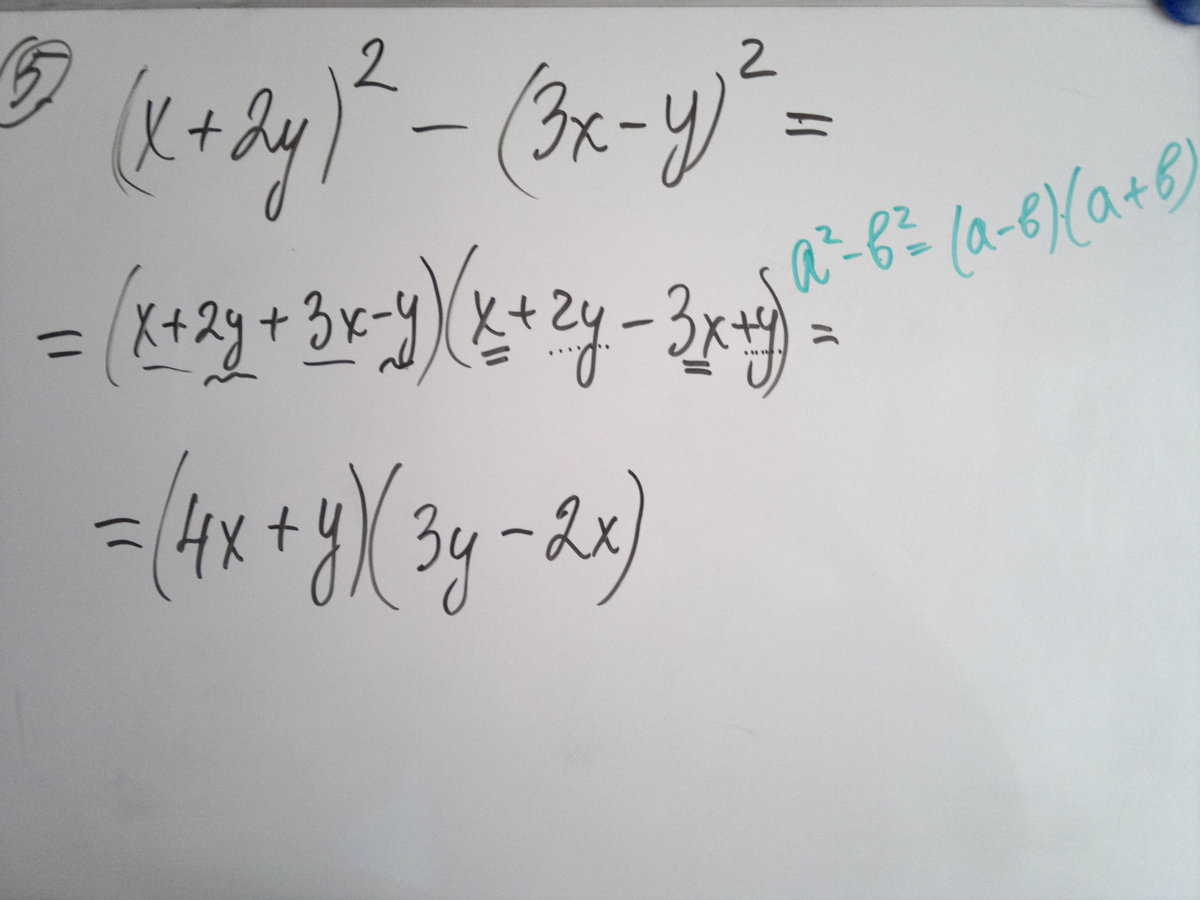 ⑤ (x+2y)² − (3x−y)² =
a²−в²= (a−в)(a+в)
= (x+2y+3x−y)(x+2y−3x+y) =
= (4x+y)(3y−2x)